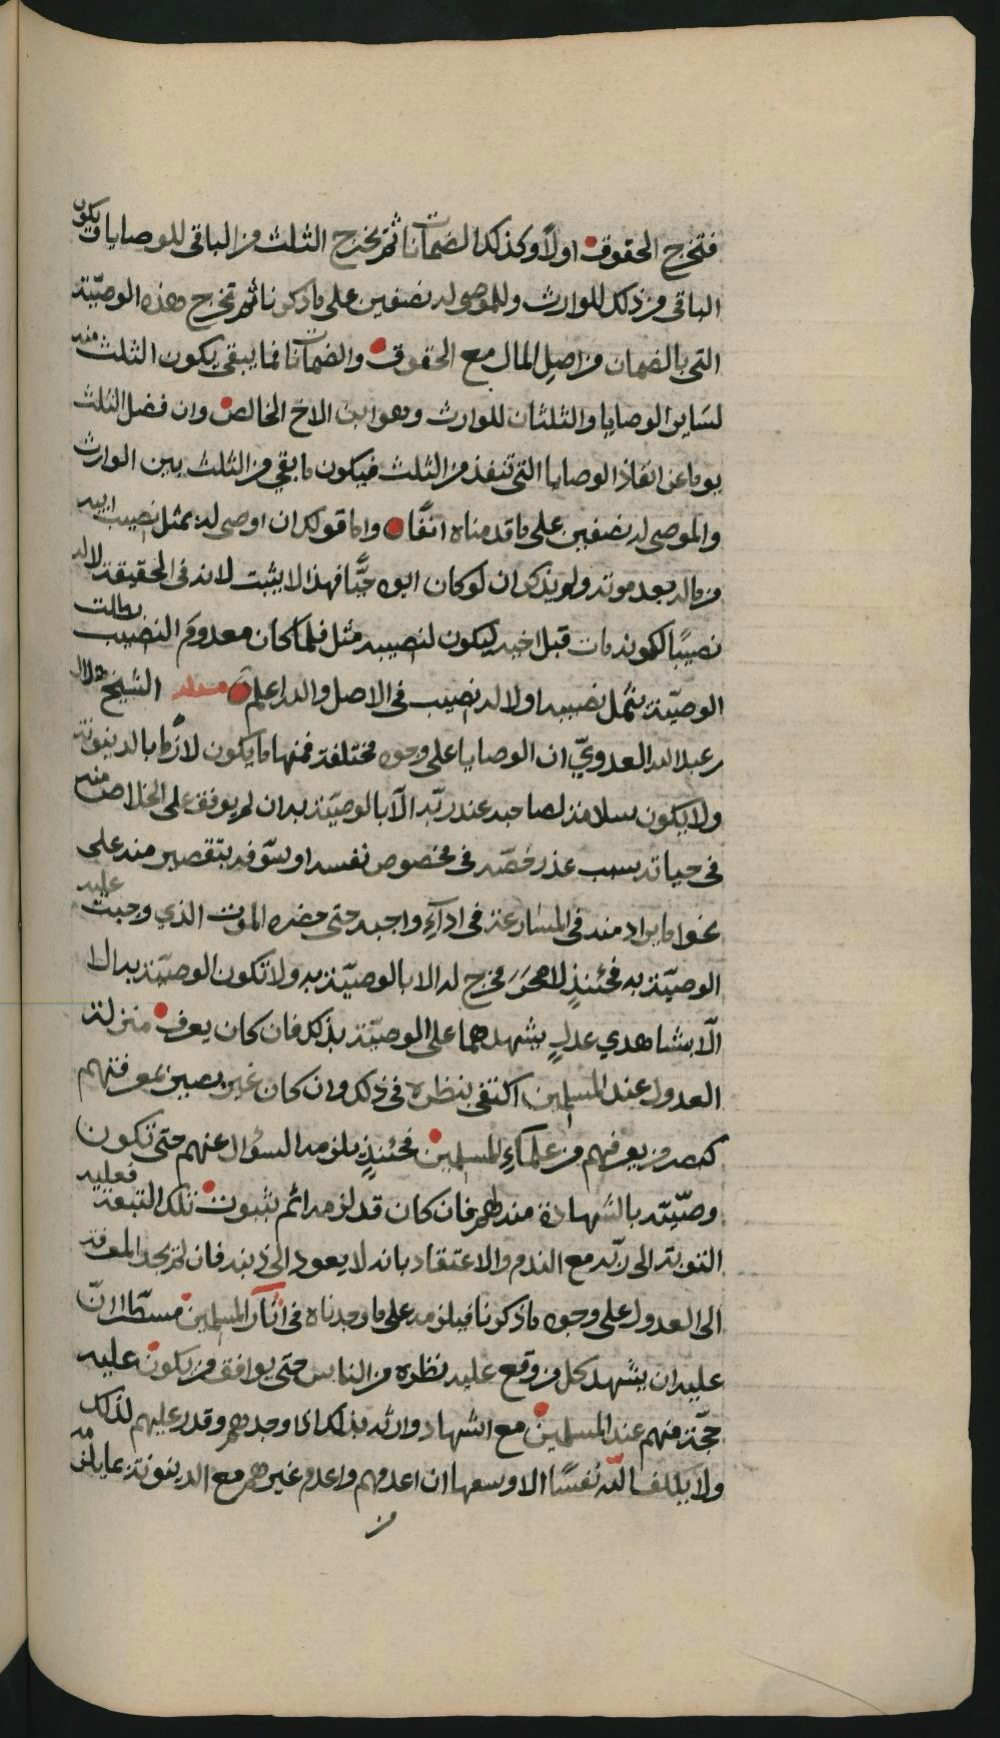 فتخرج الحقوق اولا وكذلك الضمانات ثم يخرج الثلث من الباقي للوصايا ويكون
الباقي من ذلك للوارث وللموصى له نصفين على ما ذكرنا ثم تخرج هذه الوصيّة
التي بالضمان من اصل المال مع الحقوق والضمانات فما يبقى يكون الثلث منه
لساير الوصايا والثلثان للوارث وهو ابن الاخ الخالص وان فضل الثلث
يوما عن انفاذ الوصايا التي تنفذ من الثلث فيكون ما بقي من الثلث بين الوارث
والموصى له نصفين على ما قدمناه انفًا واما قولك ان اوصى له بمثل نصيب ابيه
من ماله بعد موته ولم يذكر ان لو كان ابوه حيًّا فهذا لا يثبت لانه في الحقيقة لا له
نصيبًا لكونه مات قبل اخيه ليكون لنصيبه مثل فلما كان معدوم النصيب بطلت
الوصيّة بمثل نصيبه اولا له نصيب في الاصل والله اعلم مسئلة الشيخ هلال
بن عبدالله العدويّ ان الوصايا على وجوه مختلفة فمنها ما يكون لازمًا بالدينونة
ولا يكون سلامة لصاحبه عند ربّه الّا بالوصيّة به ان لم يوفق على الخلاص منه
في حياته بسبب عذر خصّه في مخصوص نفسه او سوّفه بتقصير منه على
نحو ما يراد منه في المسارعة في ادآءِ واجبه حتى حضره الموت الذي وجبت عليه
الوصيّة به فحئنذٍ لا مخرج له الا بالوصيّة به ولا تكون الوصيّة بهال
الّا بشاهدي عدلٍ يشهدهما على الوصيّة بذلك فان كان يعرف منزلة
العدول عند المسلمين اكتفى بنظره في ذلك وان كان غير بصير بمعرفتهم
من يعرفهم من علمآءِ المسلمين فحئنذٍ يلزمه السؤال عنهم حتى تكون
وصّيته بالشهادة منه لهم فان كان قد لزمه اثم بثبوت تلك التبعة فعليه
التوبة الى ربّه مع الندم والاعتقاد بانه لا يعود الى ذنبه فان لم يجد المعرفة
الى العدول على وجوه ما ذكرنا فيلزمه على ما وجدناه في اثآر المسلمين انّ
عليه ان يشهد كل من وقع عليه نظره من الناس حتى يوافق من يكون عليه
حجّة منهم عند المسلمين مع اشهاد وارثه بذلك اذا وجدهم وقدر عليهم لذلك
ولا يكلف الله نفسًا الا وسعها ان اعدمهم واعدم غيرهم مع الدينونة بما يلزمه
من